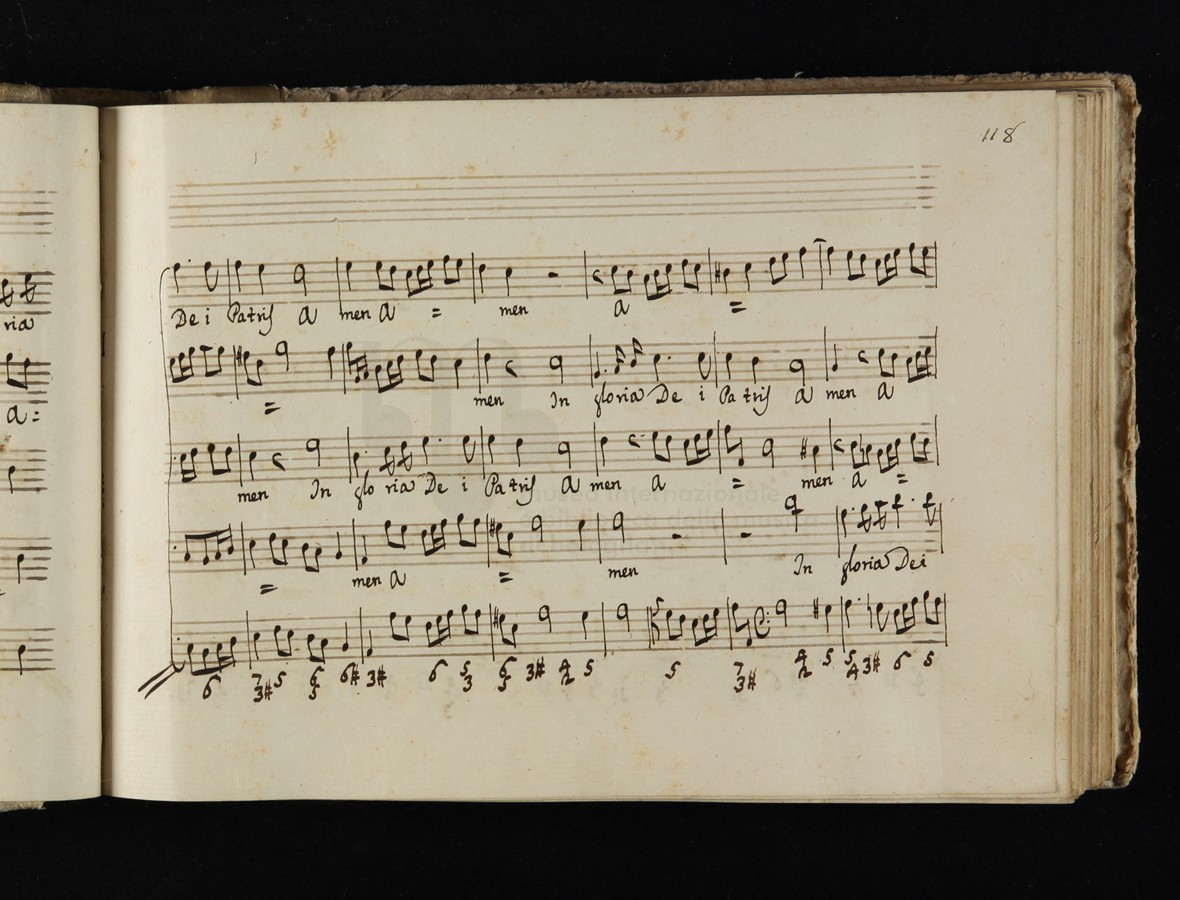 118
Dei Patris A men A = men A =
ria
= men In gloria De i Patris A men A
A =
men In glo ria De i Patris A men A = men A =
= men A = men In gloria Dei
6 7 3# 5 6 5 6# 3# 6 5 3 6 5 3# 4 2 5 5 7 3# 4 2 5 5 4 3# 6 5
museo internazionale
e biblioteca della musica